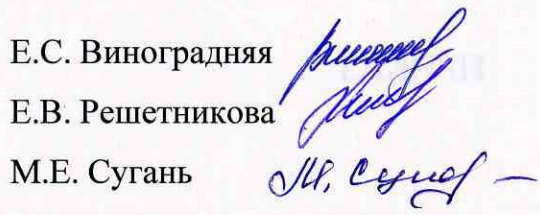 Е.С. Виноградняя
Е.В. Решетникова
М.Е. Сугань